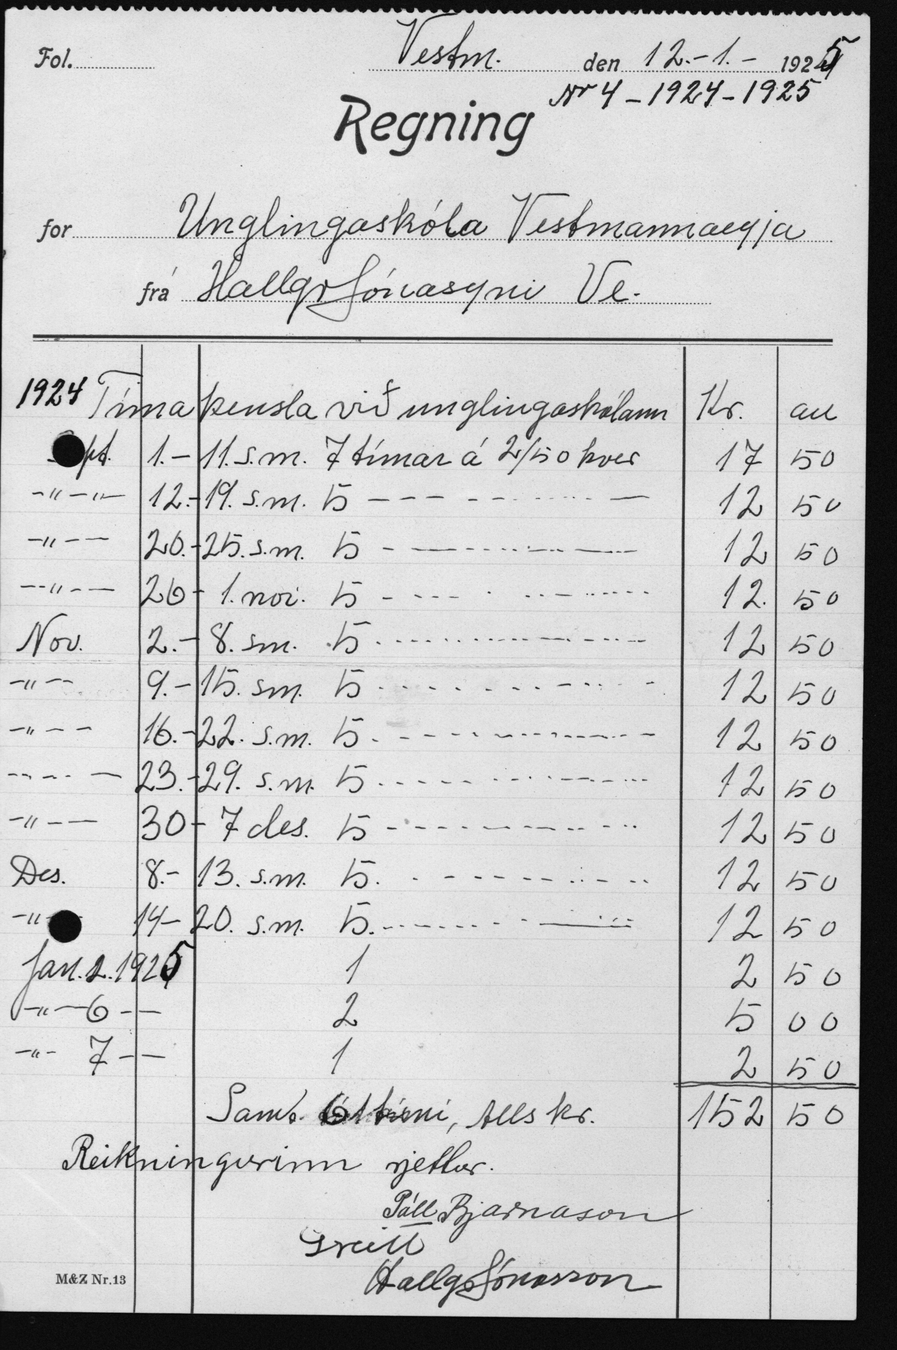 Fol. Vestm. den 12.-1.- 1925
Nr 4 - 1924 - 1925
Regning
for Unglingaskóla Vestmannaeyja
frá Hallgr Jónasyni Ve.
1924 Tímakensla við unglingaskólann Kr. au
Sept. 1.- 11. s.m. 7 tímar á 2/50 hver 17 50
-"-"- 12.- 19. s.m. 5 - - - - 12 50
-"- - 20.- 25. s.m. 5 - - - - 12 50
-"- - 26 - 1. nov. 5 - - - - 12. 50
Nov. 2.- 8. sm. 5 - - - - 12 50
-"- - 9.- 15. sm. 5 - - - - 12 50
-"- - 16.- 22. s.m. 5. - - - - 12 50
- - - 23.- 29. s.m. 5 - - - - 12 50
-"- - 30 - 7 des. 5 - - - - 12 50
Des. 8.- 13. s.m. 5. - - - - 12 50
-"- 14- 20. s.m. 5. - - - - 12 50
Jan. 2. 1925 1 2 50
-"- 6 - - 2 5 00
-"- 7 - - 1 2 50
Samt. 61 , Alls kr. 152 50
Reikningurinn rjettur.
Páll Bjarnason
Greitt
Hallgr Jónasson
M&Z Nr. 13